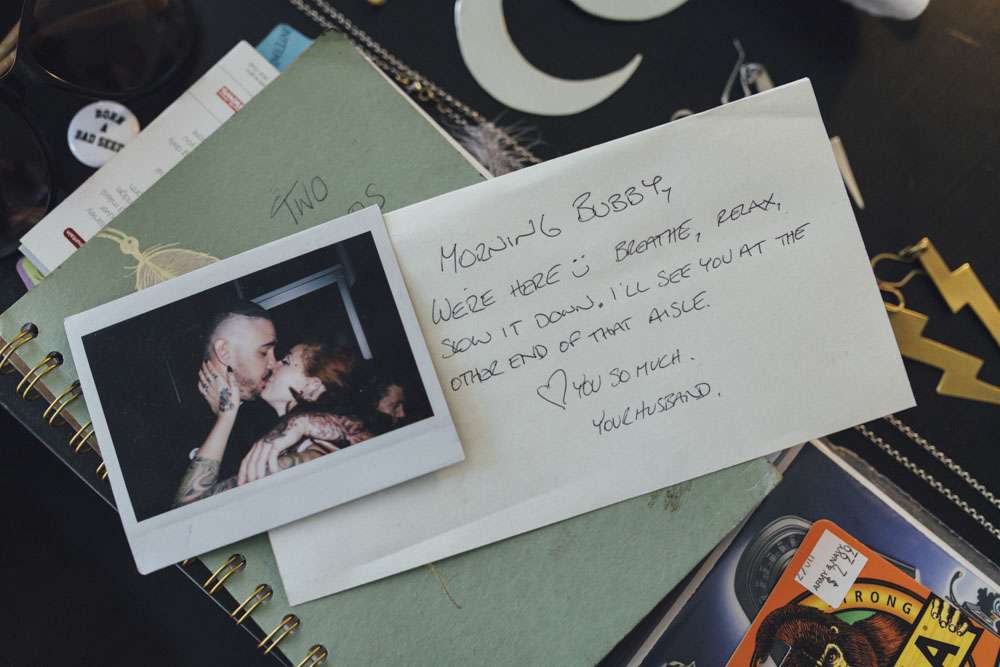 BORN
A
BAD SEED
TWO
MORNING BUBBY,
WE'RE HERE BREATHE, RELAX,
SLOW IT DOWN. I'LL SEE YOU AT THE
OTHER END OF THAT AISLE.
YOU SO MUCH.
YOUR HUSBAND.
ARMY & NAVY